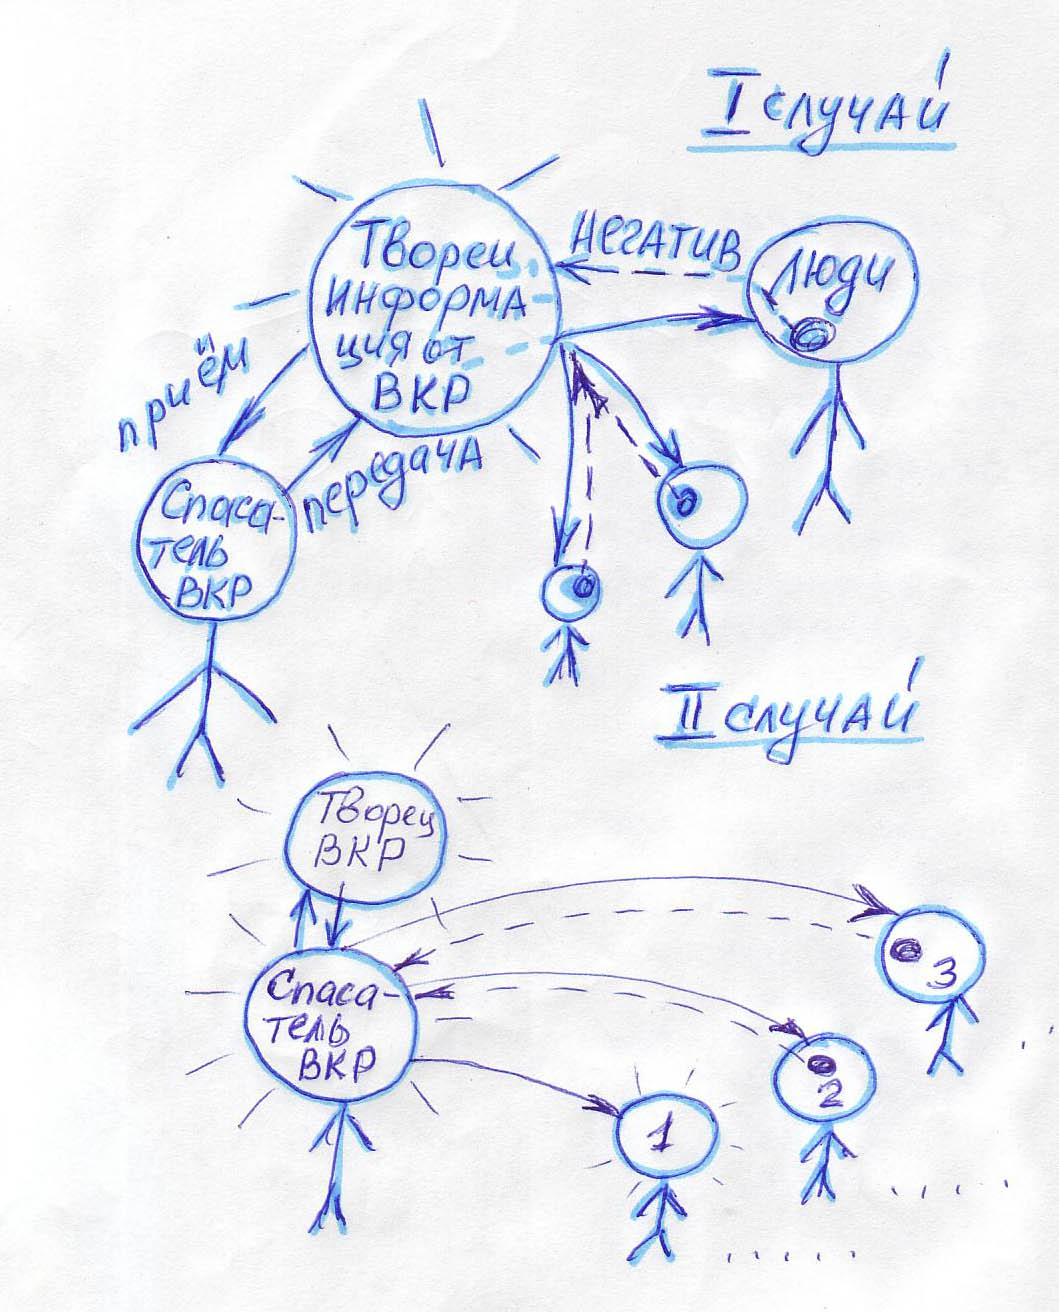 I случай
Творец
информа
ция от
ВКР
негатив
люди
приём
передача
Спаса-
тель
ВКР
II случай
Творец
ВКР
Спаса-
тель
ВКР
3
2
1